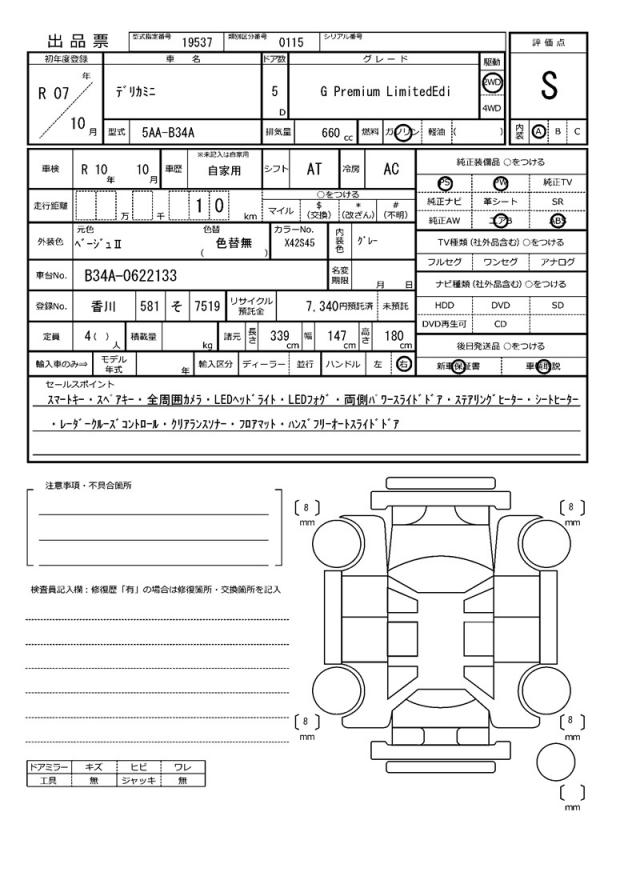 出品票 型式指定番号 19537 類別区分番号 0115 シリアル番号
評価点
S
内装 A B C
初年度登録 車名 ドア数 グレード 駆動
R 07 年 10 月
デリカミニ 5 D G Premium LimitedEdi 2WD 4WD
型式 5AA-B34A 排気量 660 cc 燃料 ガソリン 軽油 ( )
車検 R 10 年 10 月 車歴 ※未記入は自家用 自家用 シフト AT 冷房 AC
走行距離 万 千 1 0 km ○をつける
マイル $ (交換) * (改ざん) # (不明)
外装色 元色 ベージュⅡ 色替 色替無 ( ) カラーNo. X42S45 内装色 グレー
車台No. B34A-0622133 名変期限 月 日
登録No. 香川 581 そ 7519 リサイクル預託金 7,340円預託済 未預託
定員 4( ) 人 積載量 kg 諸元 長さ 339 cm 幅 147 cm 高さ 180 cm
輸入車のみ⇒ モデル年式 年 輸入区分 ディーラー ・ 並行 ハンドル 左 ・ 右
純正装備品 ○をつける
PS PW 純正TV
純正ナビ 革シート SR
純正AW エアB ABS
TV種類(社外品含む)○をつける
フルセグ ワンセグ アナログ
ナビ種類(社外品含む)○をつける
HDD DVD SD
DVD再生可 CD
後日発送品 ○をつける
新車保証書 車輌取説
セールスポイント
スマートキー・スペアキー・全周囲カメラ・LEDヘッドライト・LEDフォグ・両側パワースライドドア・ステアリングヒーター・シートヒーター
・レーダークルーズコントロール・クリアランスソナー・フロアマット・ハンズフリーオートスライドドア
注意事項・不具合箇所
検査員記入欄：修復歴「有」の場合は修復箇所・交換箇所を記入
〔 8 〕 mm
〔 8 〕 mm
〔 8 〕 mm
〔 8 〕 mm
〔 〕 mm
ドアミラー キズ ヒビ ワレ
工具 無 ジャッキ 無